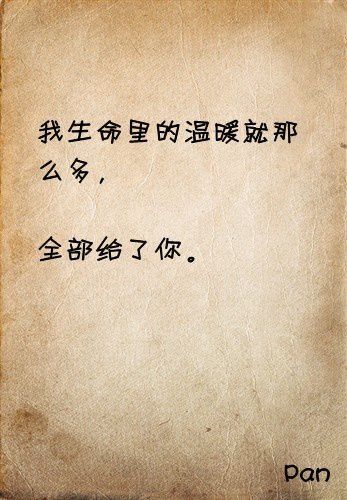 我生命里的温暖就那
么多，
全部给了你。
pan